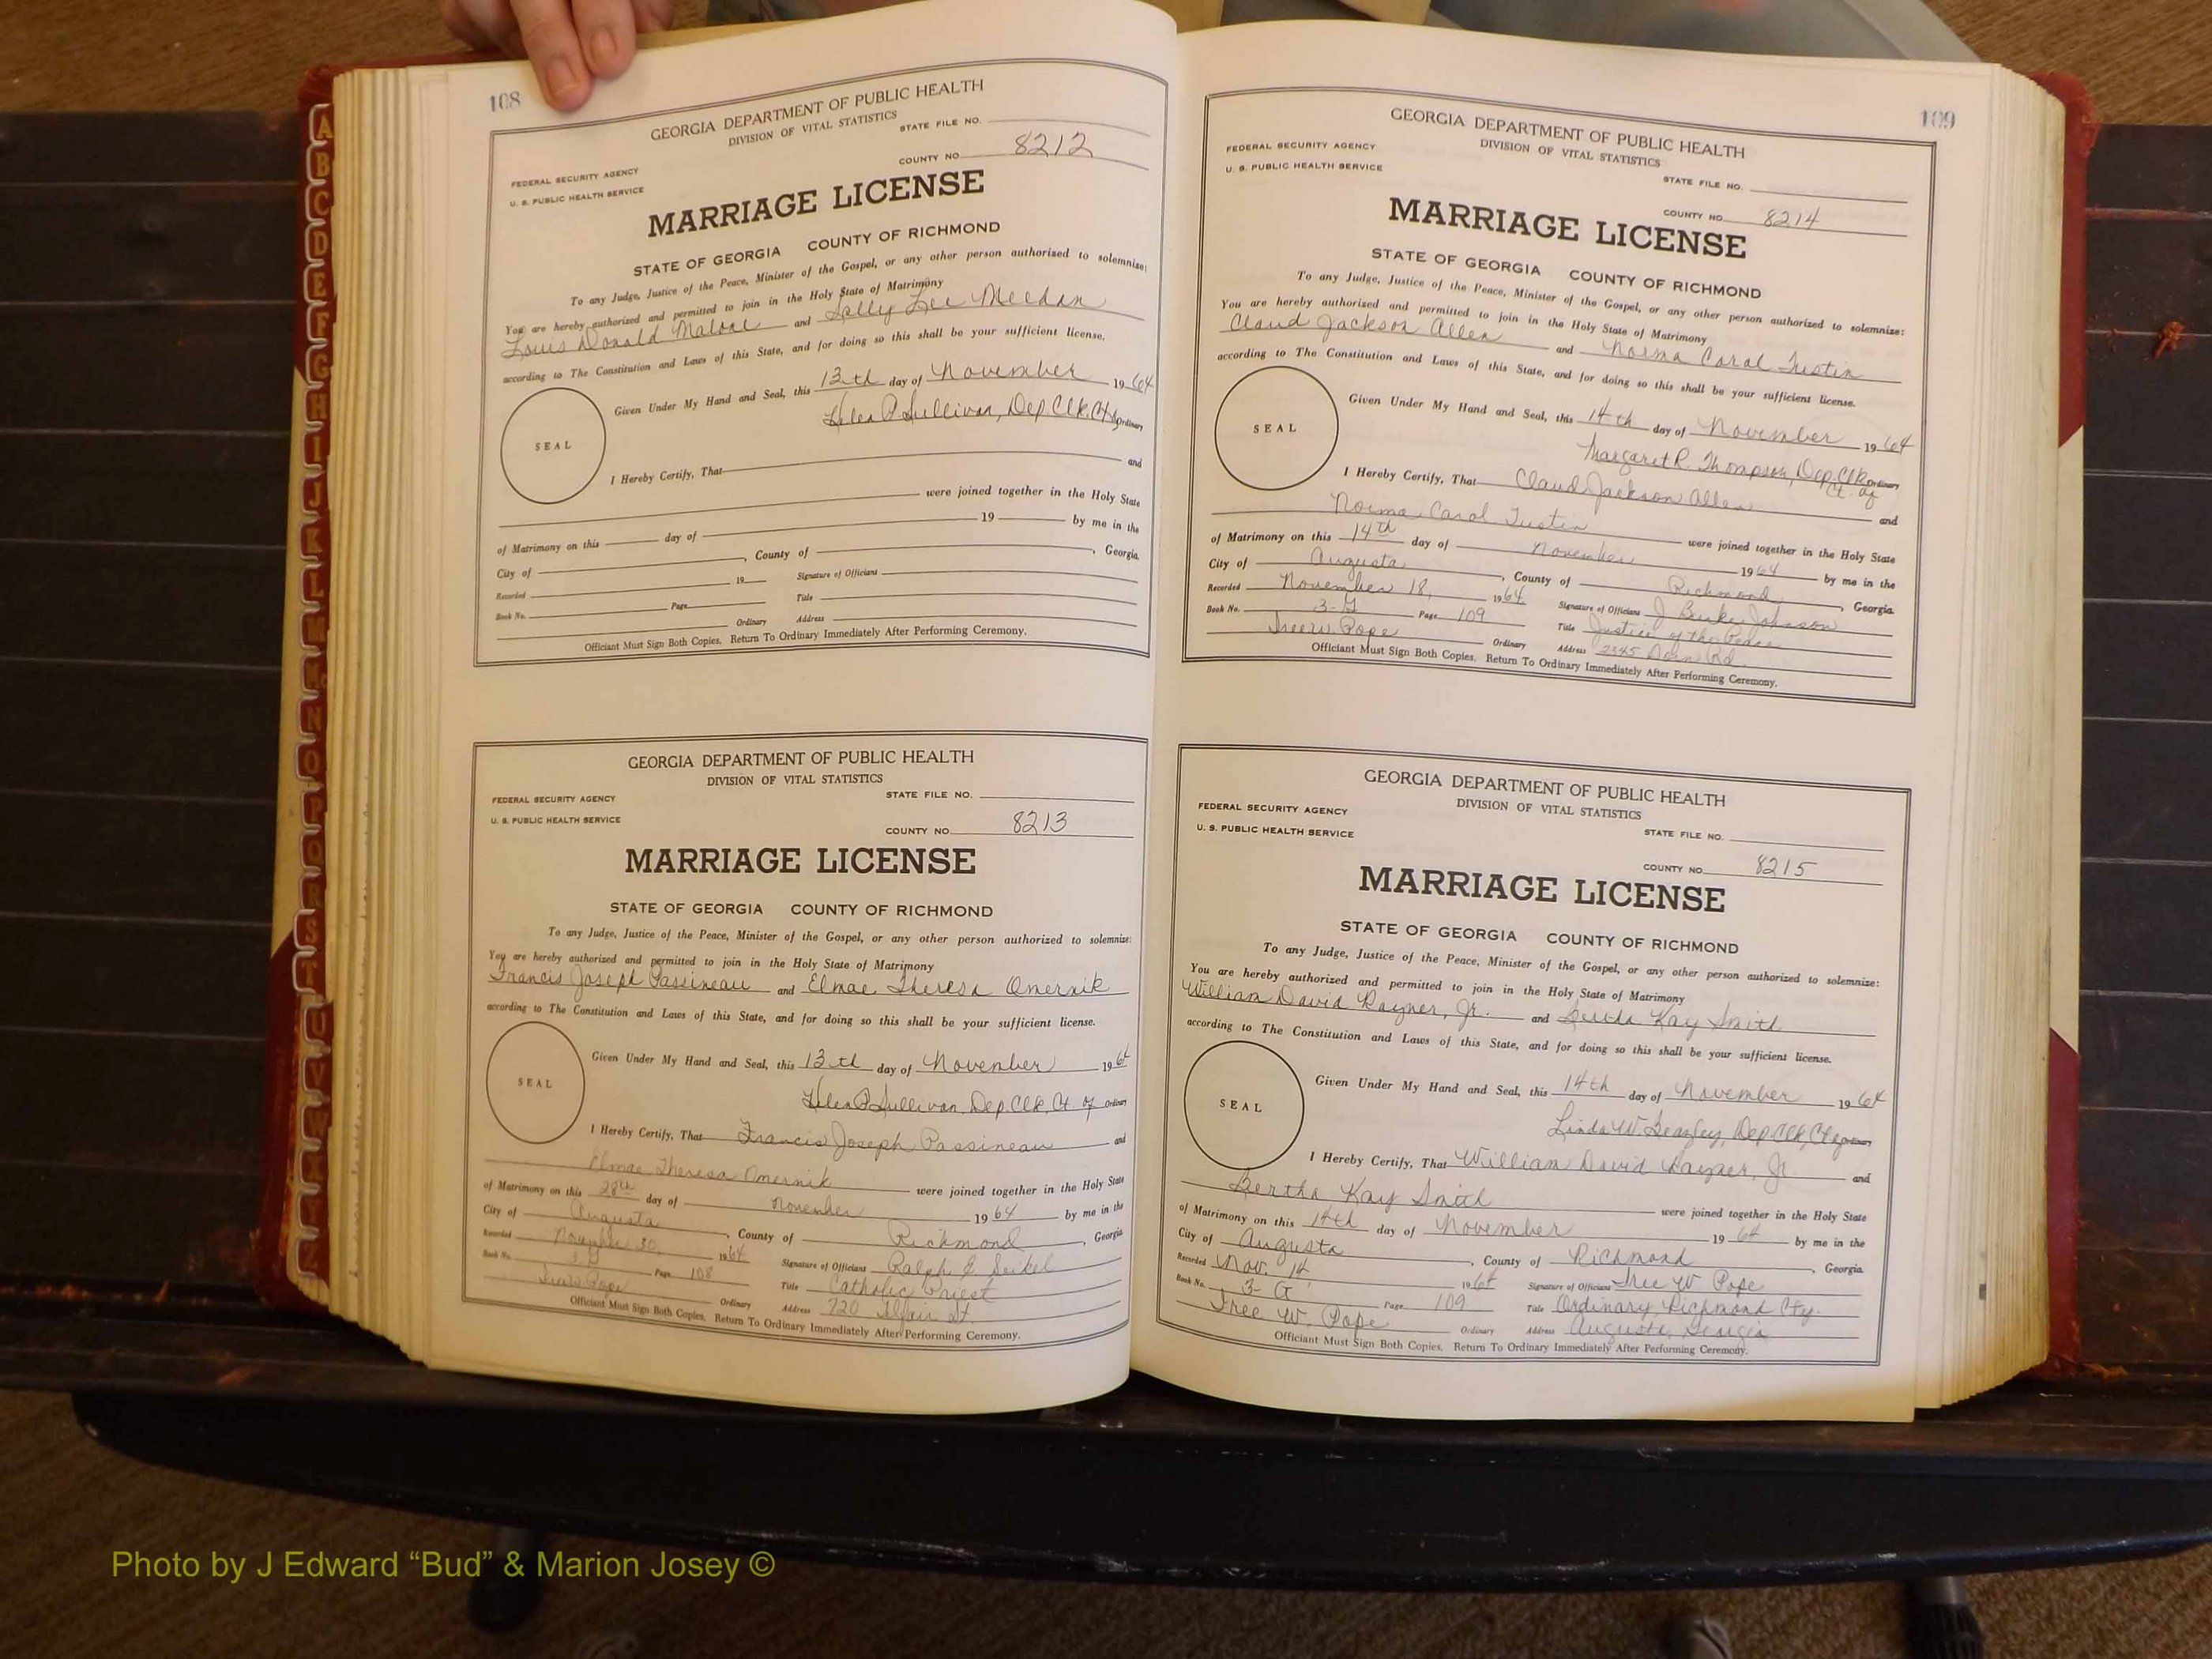 108
GEORGIA DEPARTMENT OF PUBLIC HEALTH
DIVISION OF VITAL STATISTICS
STATE FILE NO.
FEDERAL SECURITY AGENCY
U. S. PUBLIC HEALTH SERVICE
COUNTY NO. 8212
MARRIAGE LICENSE
STATE OF GEORGIA COUNTY OF RICHMOND
To any Judge, Justice of the Peace, Minister of the Gospel, or any other person authorized to solemnize:
You are hereby authorized and permitted to join in the Holy State of Matrimony
Louis Donald Malone and Sally Lee
according to The Constitution and Laws of this State, and for doing so this shall be your sufficient license.
Given Under My Hand and Seal, this 13th day of November 1964
SEAL
Helen P. Sullivan, Dep Clk, Ct of Ordinary
I Hereby Certify, That and
were joined together in the Holy State
of Matrimony on this day of 19 by me in the
City of , County of , Georgia.
Recorded 19 Signature of Officiant
Book No. Page Title
Ordinary Address
Officiant Must Sign Both Copies. Return To Ordinary Immediately After Performing Ceremony.
GEORGIA DEPARTMENT OF PUBLIC HEALTH
DIVISION OF VITAL STATISTICS
STATE FILE NO.
FEDERAL SECURITY AGENCY
U. S. PUBLIC HEALTH SERVICE
COUNTY NO. 8213
MARRIAGE LICENSE
STATE OF GEORGIA COUNTY OF RICHMOND
To any Judge, Justice of the Peace, Minister of the Gospel, or any other person authorized to solemnize:
You are hereby authorized and permitted to join in the Holy State of Matrimony
Francis Joseph Passineau and Elmae Theresa Omernik
according to The Constitution and Laws of this State, and for doing so this shall be your sufficient license.
Given Under My Hand and Seal, this 13th day of November 1964
SEAL
Helen P Sullivan, Dep Clk, Ct. of Ordinary
I Hereby Certify, That Francis Joseph Passineau and
Elmae Theresa Omernik were joined together in the Holy State
of Matrimony on this 28th day of November 1964 by me in the
City of Augusta, County of Richmond, Georgia
Recorded November 30, 1964 Signature of Officiant Ralph E. Seikel
Book No. 3-G Page 108 Title Catholic Priest
Ordinary Address 720 Telfair St.
Officiant Must Sign Both Copies. Return To Ordinary Immediately After Performing Ceremony.
109
GEORGIA DEPARTMENT OF PUBLIC HEALTH
DIVISION OF VITAL STATISTICS
FEDERAL SECURITY AGENCY
U. S. PUBLIC HEALTH SERVICE
STATE FILE NO.
COUNTY NO. 8214
MARRIAGE LICENSE
STATE OF GEORGIA COUNTY OF RICHMOND
To any Judge, Justice of the Peace, Minister of the Gospel, or any other person authorized to solemnize:
You are hereby authorized and permitted to join in the Holy State of Matrimony
Claud Jackson Allen and Norma Carol Tustin
according to The Constitution and Laws of this State, and for doing so this shall be your sufficient license.
Given Under My Hand and Seal, this 14th day of November 1964
SEAL
Margaret R. Thompson, Dep Clk Ct. of Ordinary
I Hereby Certify, That Claud Jackson Allen and
Norma Carol Tustin were joined together in the Holy State
of Matrimony on this 14th day of November 1964 by me in the
City of Augusta, County of Richmond, Georgia.
Recorded November 18, 1964 Signature of Officiant J Burke Johnson
Book No. 3-G Page 109 Title Justice of the Peace
Ordinary Address 2345 Rd.
Officiant Must Sign Both Copies. Return To Ordinary Immediately After Performing Ceremony.
GEORGIA DEPARTMENT OF PUBLIC HEALTH
DIVISION OF VITAL STATISTICS
FEDERAL SECURITY AGENCY
U. S. PUBLIC HEALTH SERVICE
STATE FILE NO.
COUNTY NO. 8215
MARRIAGE LICENSE
STATE OF GEORGIA COUNTY OF RICHMOND
To any Judge, Justice of the Peace, Minister of the Gospel, or any other person authorized to solemnize:
You are hereby authorized and permitted to join in the Holy State of Matrimony
William David Rayner, Jr. and Bertha Kay Smith
according to The Constitution and Laws of this State, and for doing so this shall be your sufficient license.
Given Under My Hand and Seal, this 14th day of November 1964
SEAL
Linda W. Beazley, Dep Clk, Ct of Ordinary
I Hereby Certify, That William David Rayner, Jr. and
Bertha Kay Smith were joined together in the Holy State
of Matrimony on this 14th day of November 1964 by me in the
City of Augusta, County of Richmond, Georgia
Recorded Nov. 14, 1964 Signature of Officiant Tree W Pope
Book No. 3-G Page 109 Title Ordinary Richmond Cty.
Tree W. Pope Ordinary Address Augusta, Georgia
Officiant Must Sign Both Copies. Return To Ordinary Immediately After Performing Ceremony.
Photo by J Edward “Bud” & Marion Josey ©